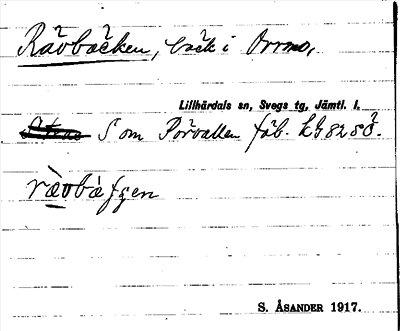 Rävbäcken, bäck i Orrmo,
Lillhärdals sn, Svegs tg, Jämtl. l.
S om Porvallen fäb.
rävbäfgen
S. ÅSANDER 1917.